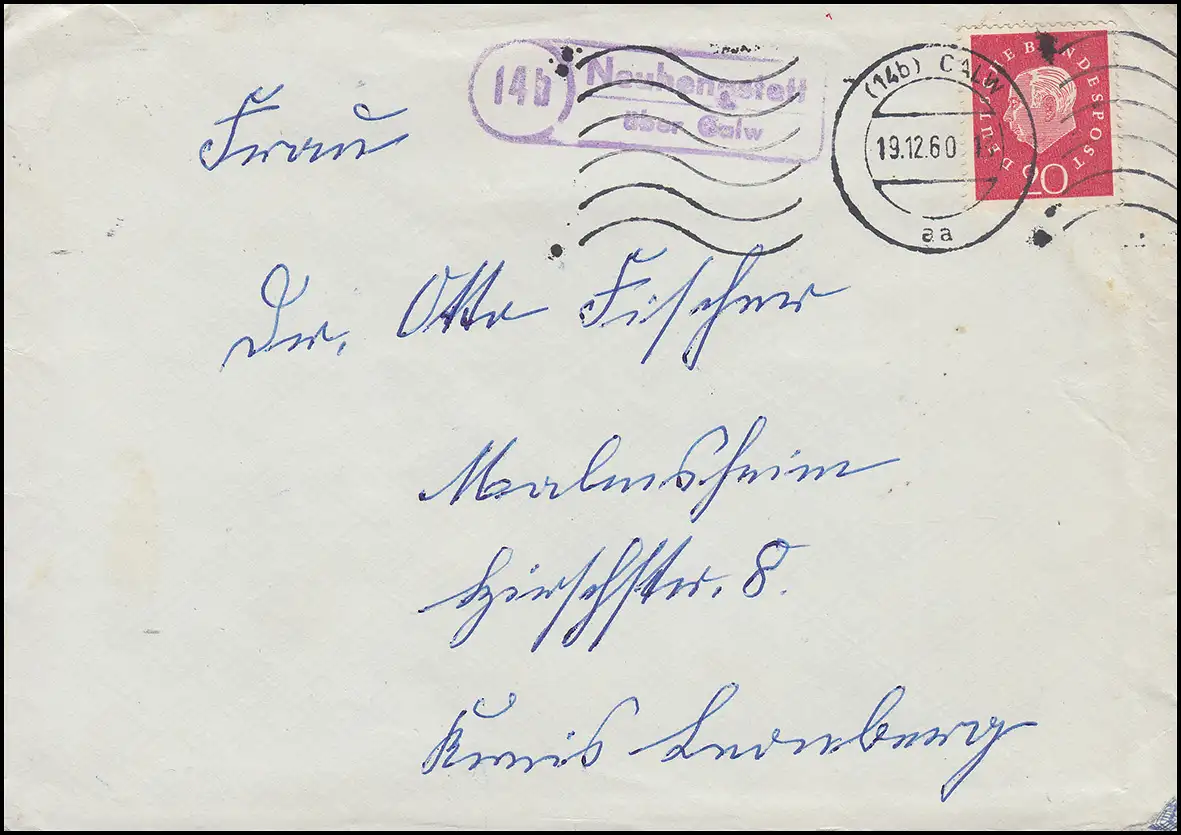 14b
Neuhengstett
über Calw
(14b) CALW
19.12.60
aa
DEUTSCHE BUNDESPOST
20
Frau
Dr. Otto Fischer
Malmsheim
Hirschstr. 8.
Kreis Leonberg